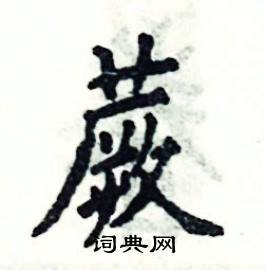 蕨
词典网